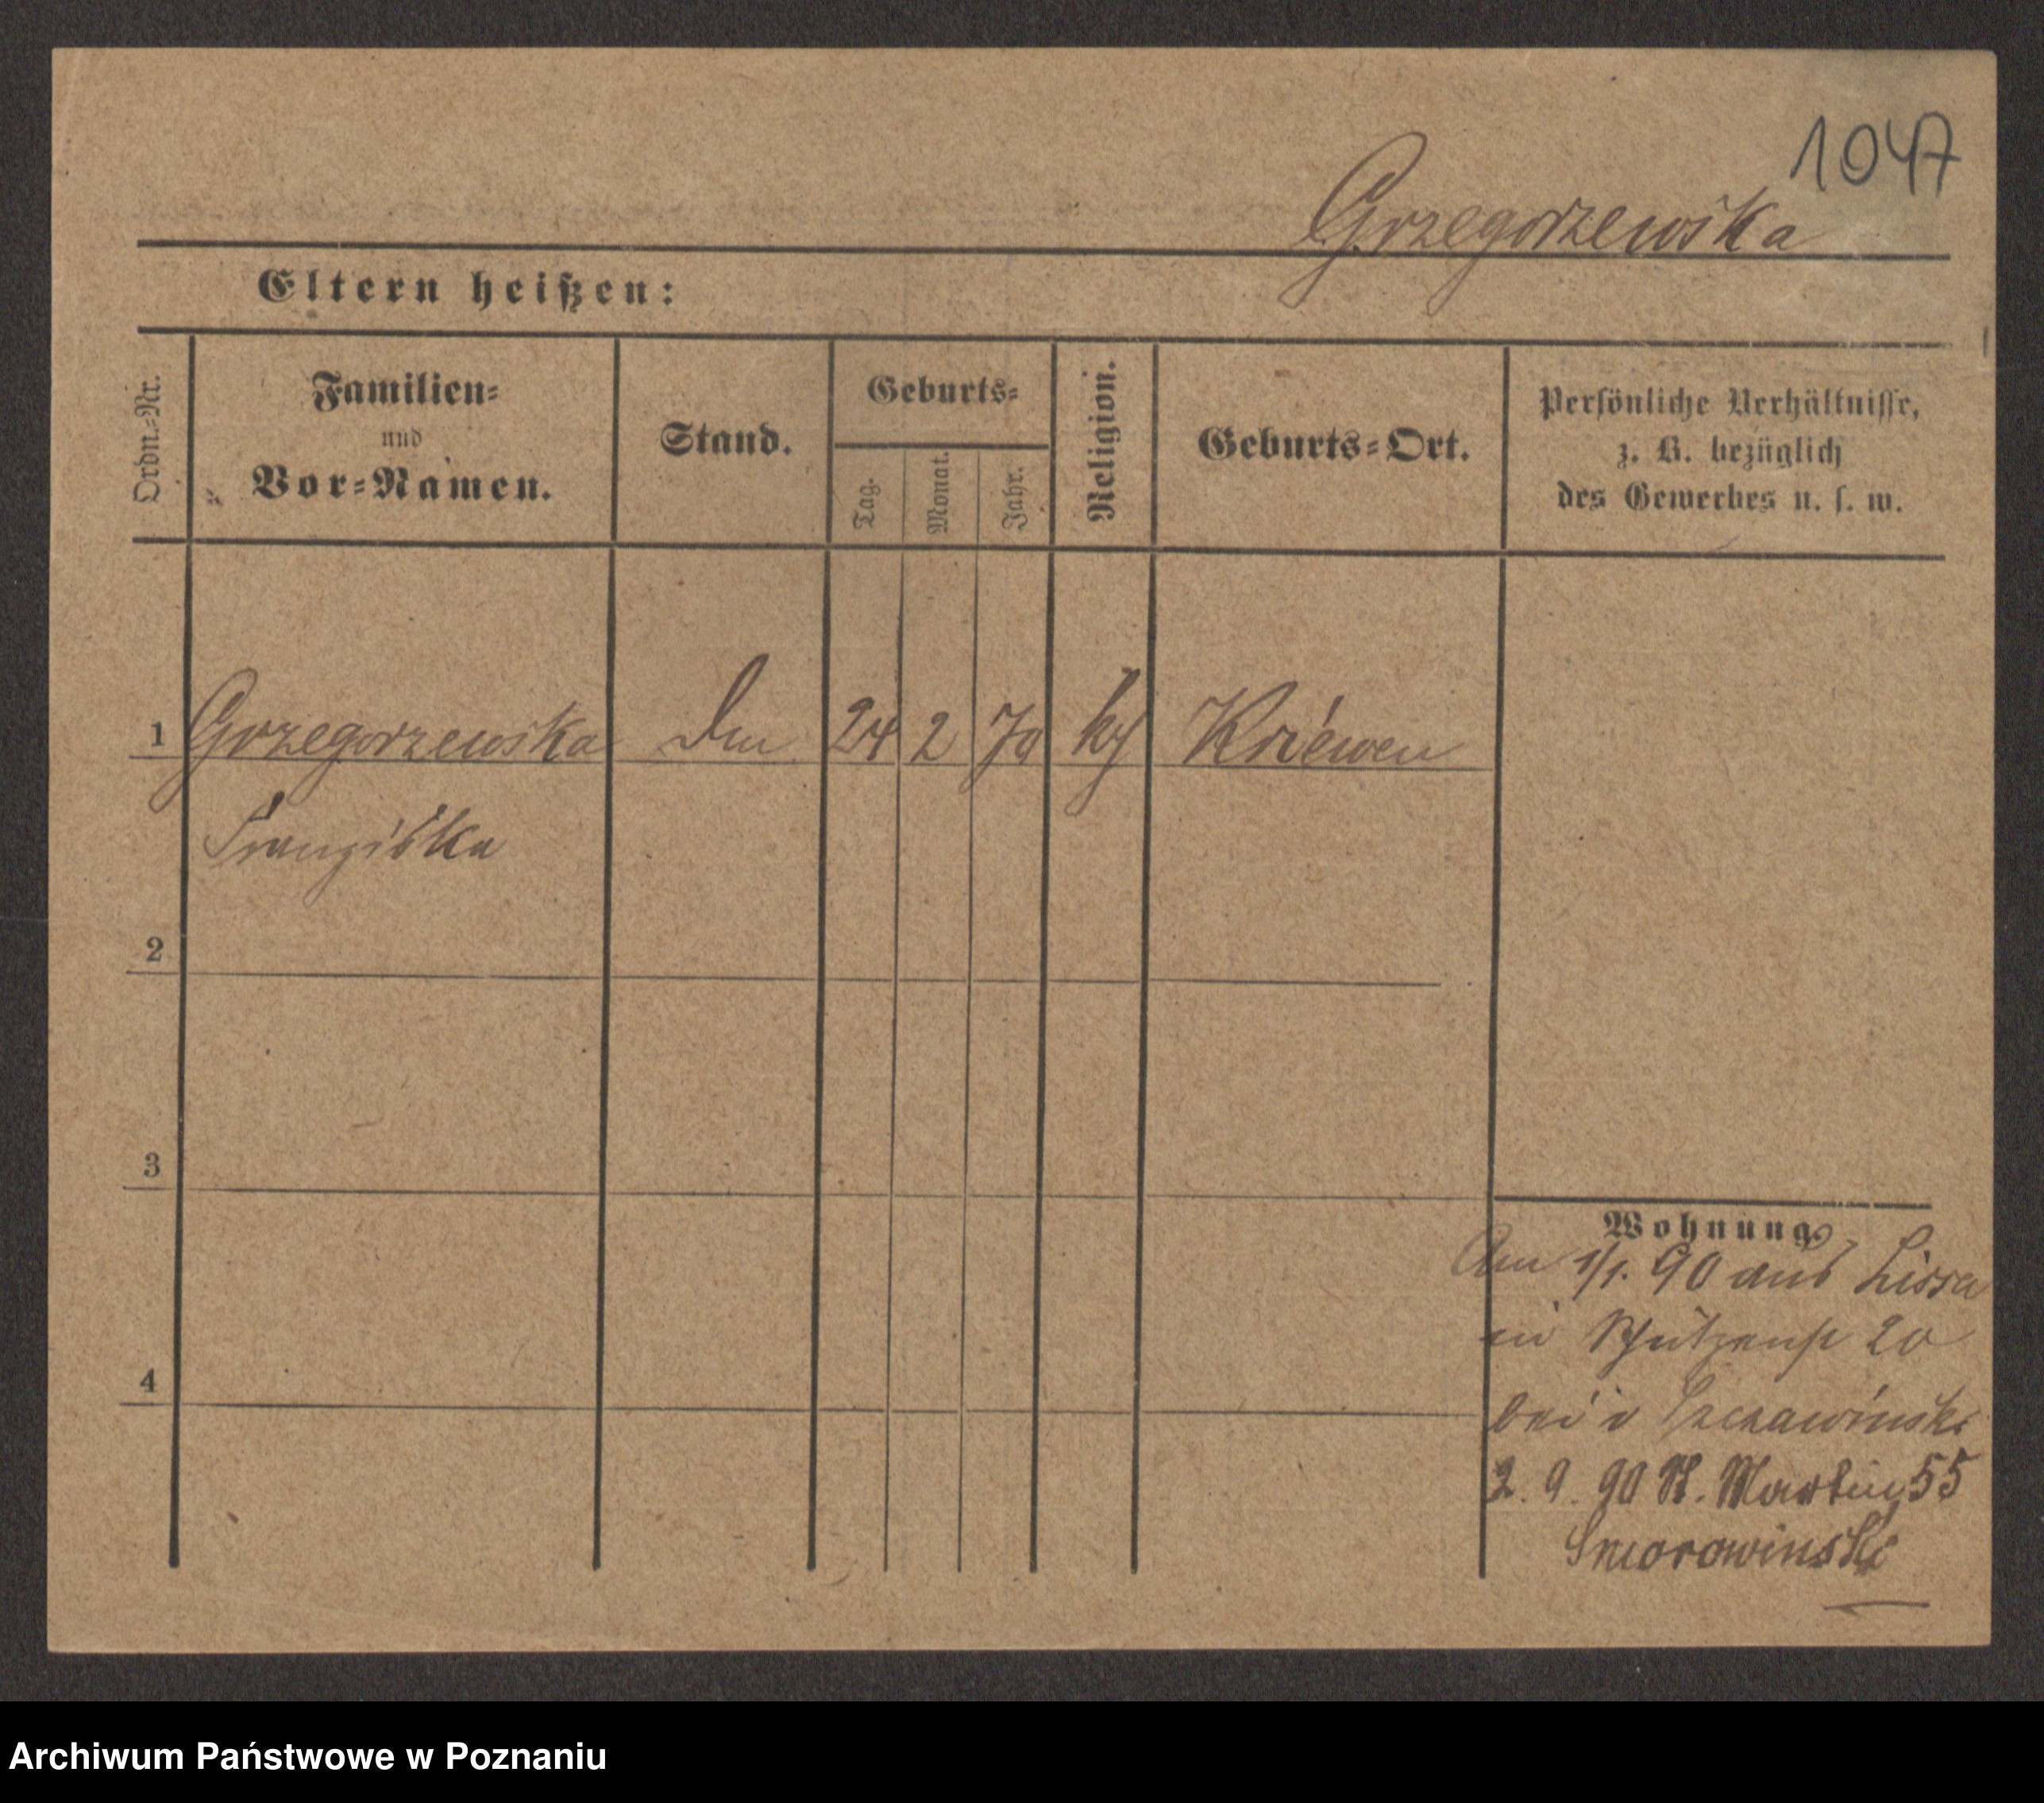 1047
Grzegorzewska
Eltern heißen:
Ordn.-Nr.
Familien-
und
Vor-Namen.
Stand.
Geburts-
Tag.
Monat.
Jahr.
Religion.
Geburts-Ort.
Persönliche Verhältnisse,
z. B. bezüglich
des Gewerbes u. s. w.
1 Grzegorzewska 24 2 70 Kriewen
Franziska
2
3
4
Wohnung
Am 1/1. 90 aus Lissa
in Schützenst 20
bei v
2. 9. 90 St. Martin 55
Smorowinski
Archiwum Państwowe w Poznaniu